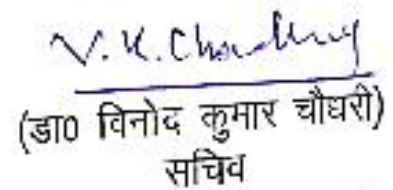 V. K. Choudhury
(डा0 विनोद कुमार चौधरी)
सचिव